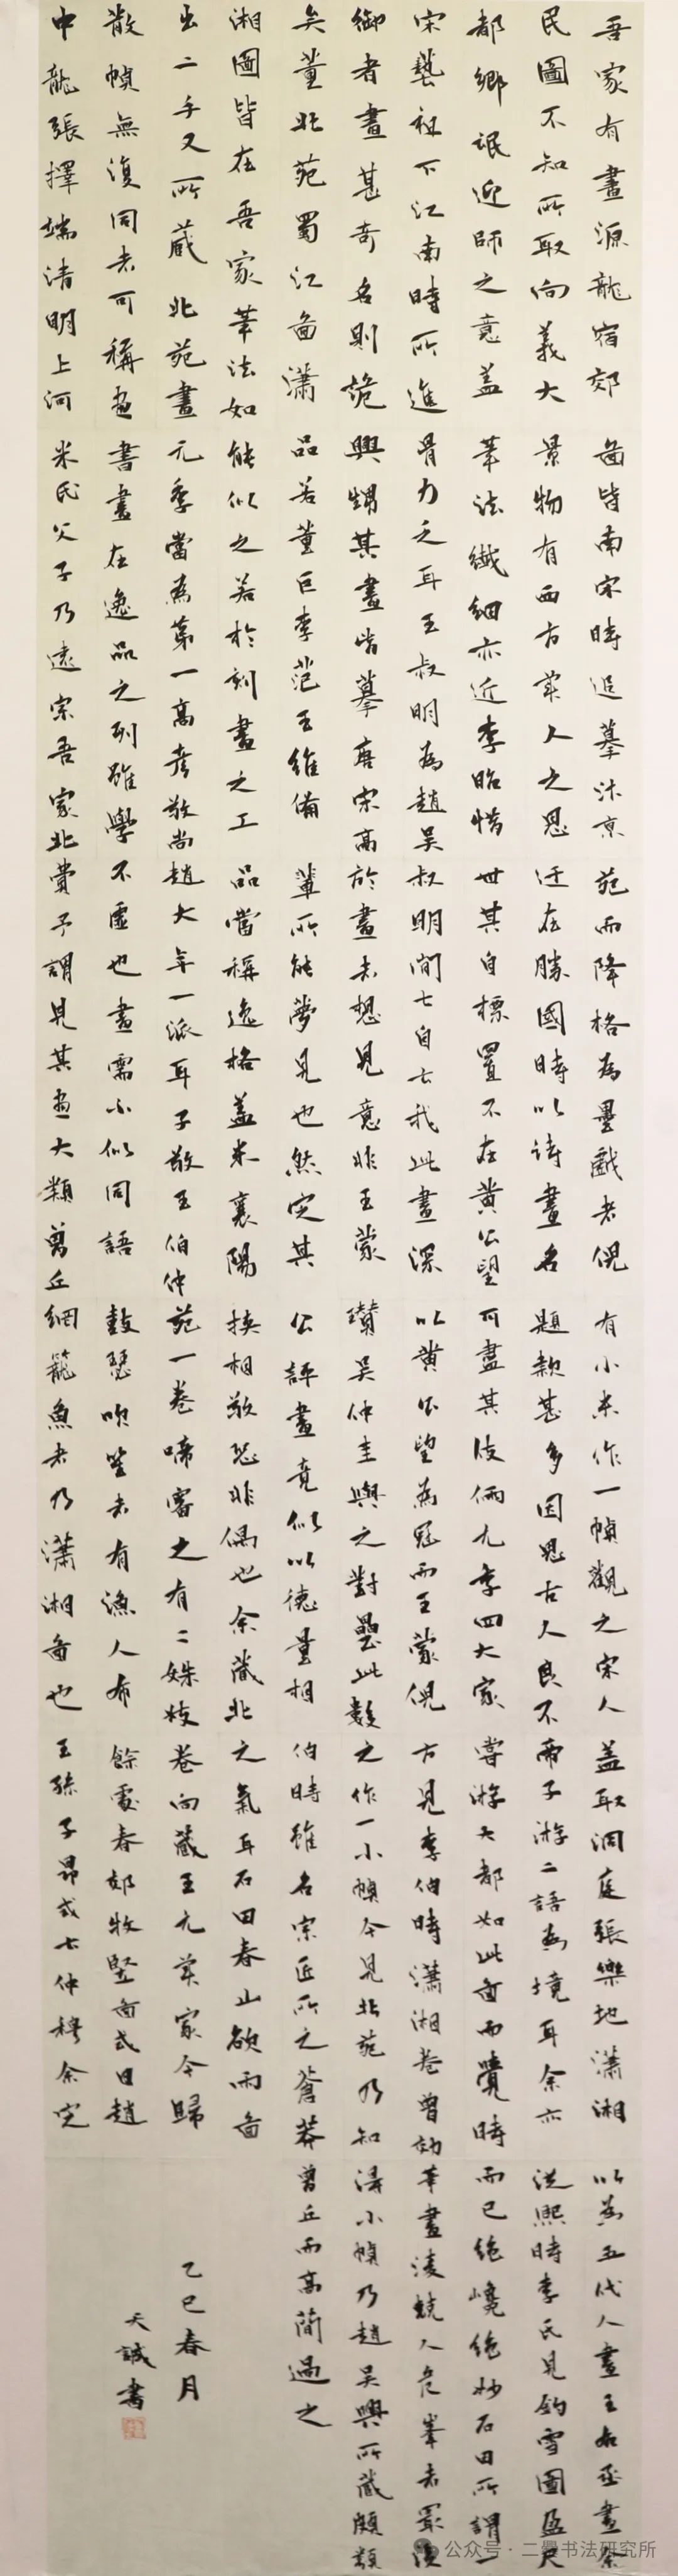 吾家有畫源龍宿郊
民圖不知所取向義大
都鄉氓迎師之意蓋
宋藝祖下江南時所進
御者畫甚奇名則詭
矣董北苑蜀江圖瀟
湘圖皆在吾家筆法如
出二手又所藏北苑畫
散幀無復同者可稱畫
中龍張擇端清明上河
圖皆南宋時追摹汴京
景物有西方美人之思
筆法纖細亦近李昭惜
骨力乏耳王叔明為趙吳
興甥其畫皆摹唐宋高
品若董巨李范王維備
能似之若於刻畫之工
元季當為第一高彥敬尚
書畫在逸品之列雖學
米氏父子乃遠宗吾家北
苑而降格為墨戲者倪
迂在勝國時以詩畫名
世其自標置不在黃公望
叔明間云自云我此畫深
於畫者想見意非王蒙
輩所能夢見也然定其
品當稱逸格蓋米襄陽
趙大年一派耳子敬王伯仲
不虛也畫需不似同語
賞予謂見其畫大類營丘
有小米作一幀觀之宋人
題款甚多因思古人良不
可盡其伎倆元季四大家
以黃公望為冠而王蒙倪
瓚吳仲圭與之對壘此數
公評畫竟似以德量相
挾相敬恐非偶也余藏北
苑一卷啼審之有二姝枝
鼓瑟吹笙者有漁人布
網籠魚者乃瀟湘圖也
蓋取洞庭張樂地瀟湘
帝子游二語為境耳余亦
嘗游大都如此圖而覺時
方見李伯時瀟湘卷曾效
之作一小幀今見北苑乃知
伯時雖名宗匠所之蒼莽
之氣耳石田春山欲雨圖
卷向藏王元美家今歸
餘處春郊牧豎圖或曰趙
王孫子昂或云仲穆余定
以為五代人畫王右丞畫余
從熙時李氏見釣雪圖盈尺
而已絕峻絕妙石田所謂一
筆畫凌競人危峯者最後
得小幀乃趙吳興所藏頗類
營丘而高簡過之
乙巳春月
天誠書
公众号·二爨书法研究所